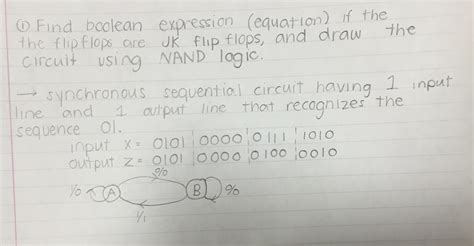 ① Find boolean expression (equation) if the
the flipflops are JK flip flops, and draw the
circuit using NAND logic.
→ synchronous sequential circuit having 1 input
line and 1 output line that recognizes the
sequence 01.
input x = 0101 | 0000 | 0111 | 1010
output z = 0101 | 0000 | 0100 | 0010
0/0
1/0 A B 0/0
1/1